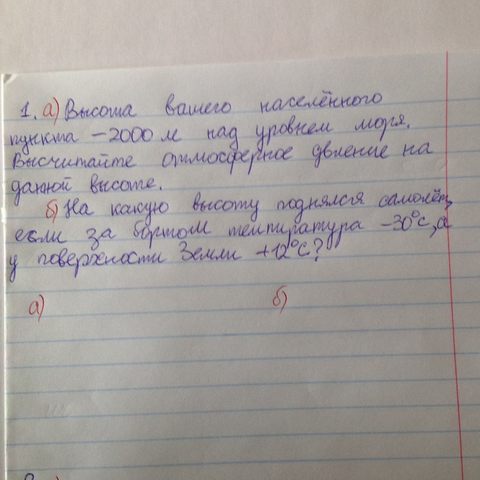 1. а) Высота вашего населённого
пункта – 2000 м над уровнем моря.
Высчитайте атмосферное двление на
данной высоте.
б) На какую высоту поднялся самолёт,
если за бортом температура –30°С, а
у поверхности Земли +12°С?
а) б)